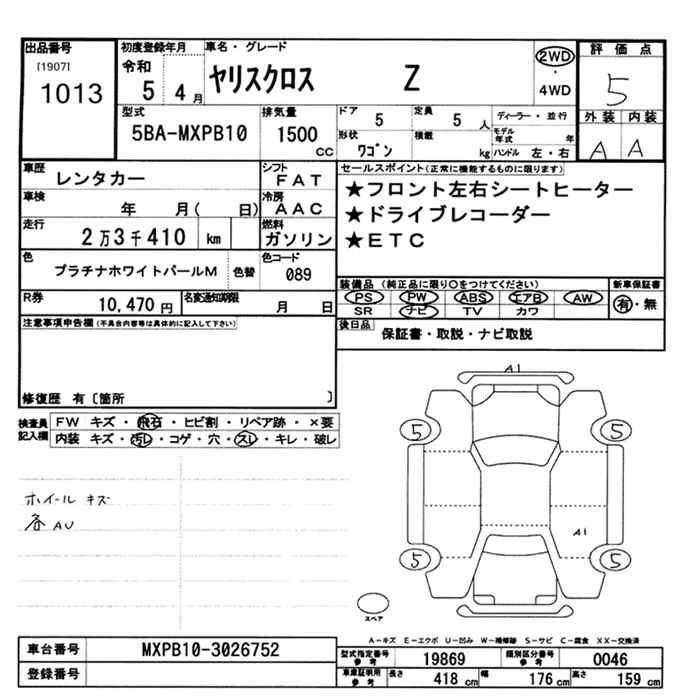 出品番号
[1907]
1013
初度登録年月
令和
5 4 月
車名・グレード
ヤリスクロス Z
2WD
・
4WD
評価点
5
外装 内装
A A
型式
5BA-MXPB10
排気量
1500
CC
ドア
5
定員
5 人
形状
ワゴン
積載
kg
ディーラー・並行
モデル年式 年
ハンドル 左・右
車歴
レンタカー
シフト
FAT
車検
年 月( 日)
冷房
AAC
走行
2万3千410 km
燃料
ガソリン
色
プラチナホワイトパールM
色替
色コード
089
R券
10,470 円
名変通知期限
月 日
セールスポイント(正常に機能するものに限ります)
★フロント左右シートヒーター
★ドライブレコーダー
★ETC
装備品 (純正品に限り○をつけてください)
PS PW ABS エアB AW
SR ナビ TV カワ
新車保証書
有・無
後日品
保証書・取説・ナビ取説
注意事項申告欄(不具合内容等は具体的に記入して下さい)
修復歴 有〔箇所 〕
検査員
記入欄
FW キズ・飛石・ヒビ割・リペア跡・×要
内装 キズ・汚レ・コゲ・穴・スレ・キレ・破レ
ホイール キズ
各 AU
A1
5 5
A1
5 5
スペア
A-キズ E-エクボ U-凹み W-補修跡 S-サビ C-腐食 XX-交換済
車台番号
MXPB10-3026752
登録番号
型式指定番号
参考
19869
類別区分番号
参考
0046
車庫証明用
参考
長さ 418 cm
幅 176 cm
高さ 159 cm